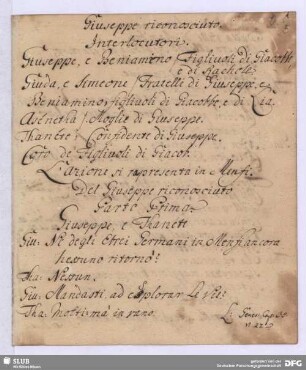 Giuseppe riconosciuto
Interlocutori.
Giuseppe, e Beniamino } Figlivoli di Giacobbe
e di Rachele.
Giuda, e Simeone } Fratelli di Giuseppe, e
Beniamino, figlivoli di Giacobbe, e di Lia.
Asenetha } Moglie di Giuseppe.
Thanete } Confidente di Giuseppe.
Coro de Figlivoli di Giacob.
L'azione si rappresenta in Menfi.
Del Giuseppe riconosciuto
Parte Prima
Giuseppe, e Thanete
Giu: Nè degli Ebrei Germani in Menfi ancora
nessuno ritornò?
Tha: Nessun.
Giu: Mandasti, ad esplorar
Tha: Molti; ma in vano.
SLUB
Wir führen Wissen.
Deutsche Forschungsgemeinschaft